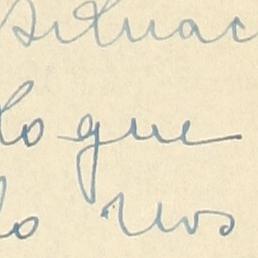 situac
logue
lo nos